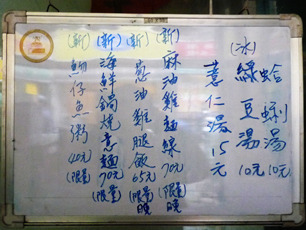 (冰)
蛤蜊湯 10元
綠豆湯 10元
薏仁湯 15元
(新) 麻油雞麵線 70元 (限量) 晚
(新) 蔥油雞腿飯 65元 (限量) 晚
(新) 海鮮鍋燒意麵 70元 (限量)
(新) 魩仔魚粥 40元 (限量)